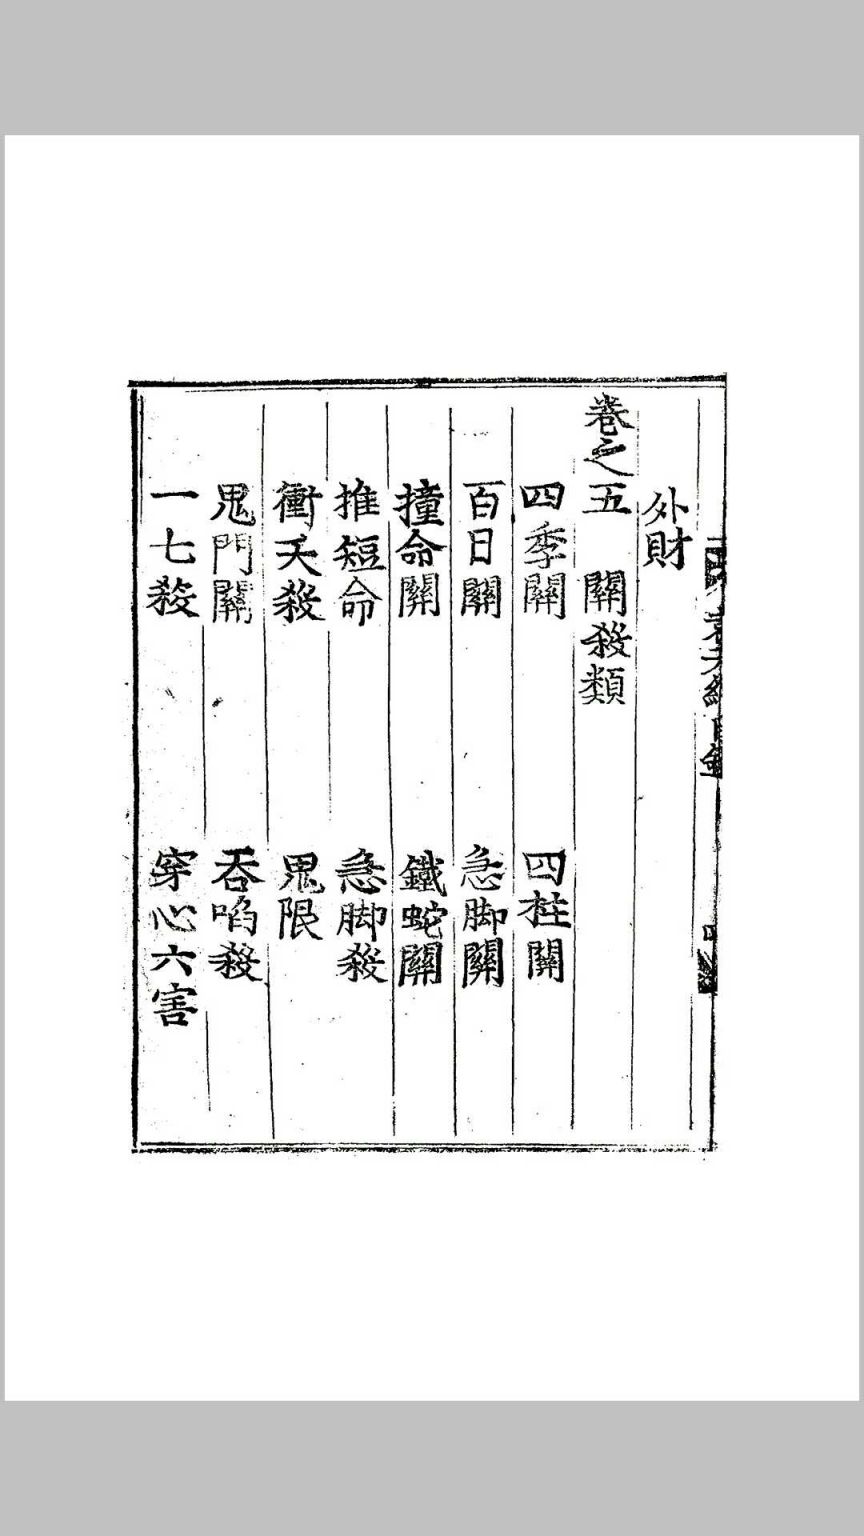 外財
卷之五　關殺類
四季關　四柱關
百日關　急脚關
撞命關　鐵蛇關
推短命　急脚殺
衝天殺　鬼限
鬼門關　吞啗殺
一七殺　穿心六害